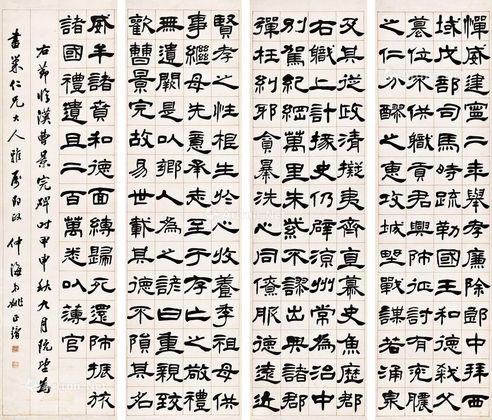 憚威建寧二年舉孝廉除郎中拜西
域戊部司馬時疏勒國王和德弒父
篡位不供職貢君興師征討有兗膿
之仁分醪之惠攻城野戰謀若涌泉
及其從政清擬夷齊直慕史魚歷郡
右職上計掾史仍辟涼州常為治中
別駕紀綱萬里朱紫不謬出典諸郡
彈枉糾邪貪暴洗心同僚服德遠近
賢孝之性根生於心收養季祖母供
事繼母先意承志至于存亡之敬禮
無遺闕是以鄉人為之諺曰重親致
歡曹景完故易世載其德不隕其名
威牟諸賁和德面縛歸死還師振旅
諸國禮遺且二百萬悉以薄官
右節臨漢曹景完碑時甲申秋九月既望為
仁兄大人雅屬即政 仲海弟姚正鏞